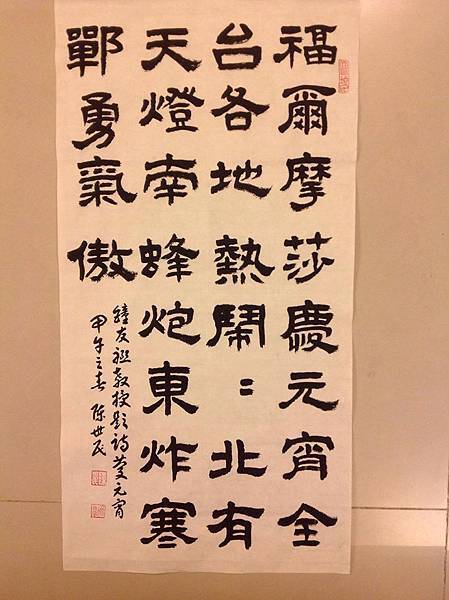 福爾摩莎慶元宵全
台各地熱鬧：：北有
天燈南蜂炮東炸寒
鄲勇氣傲
鍾友聯教授題詩慶元宵
甲午之春 陳世民